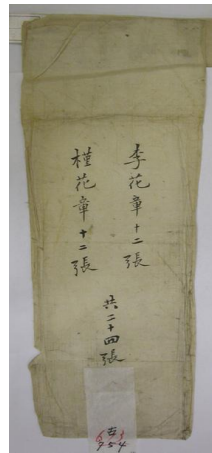 李花章十二張
槿花章十二張
共二十四張